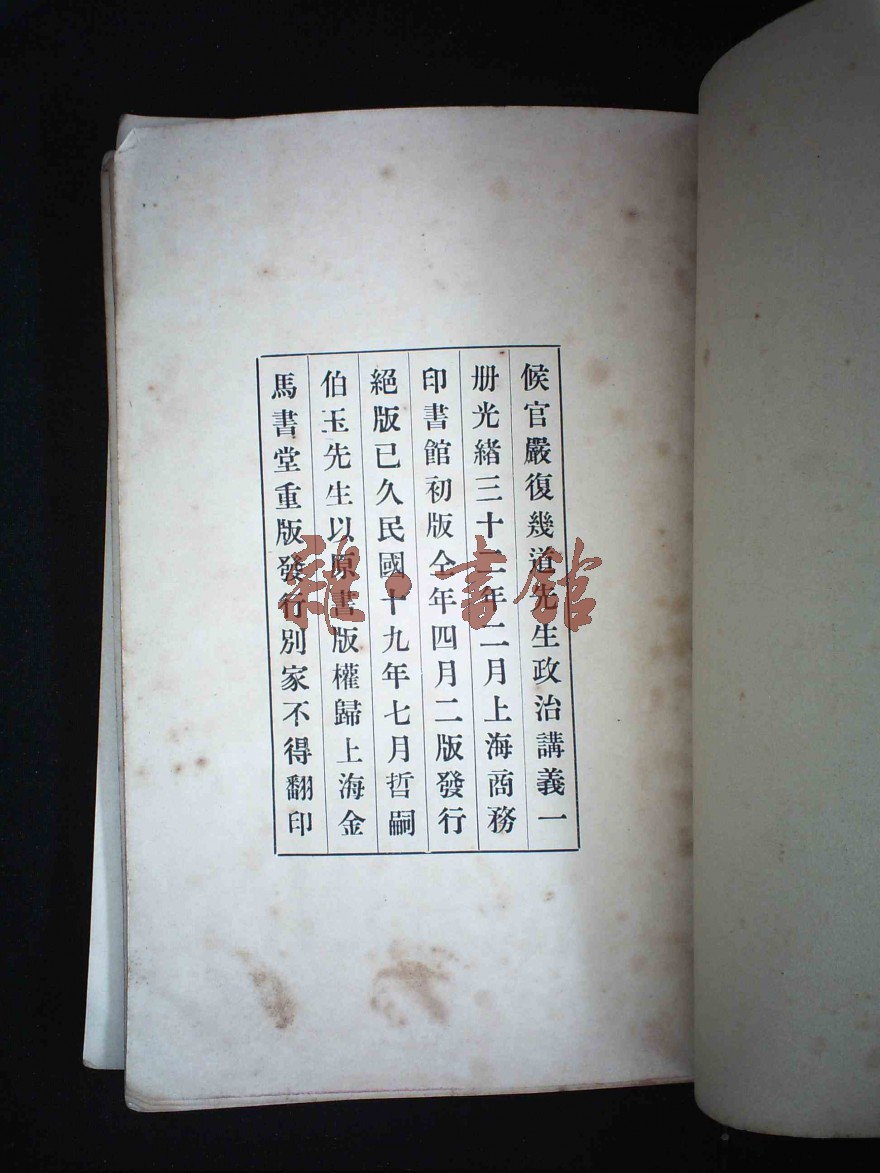 候官嚴復幾道先生政治講義一
册光緒三十二年二月上海商務
印書館初版仝年四月二版發行
絕版已久民國十九年七月哲嗣
伯玉先生以原書版權歸上海金
馬書堂重版發行別家不得翻印
雜·書館